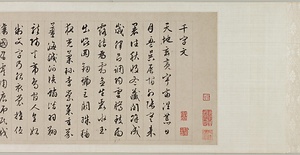 千字文
天地玄黃宇宙洪荒日
月盈昃辰宿列張寒來
暑往秋收冬藏閏餘成
歲律呂調陽雲騰致雨
露結為霜金生麗水玉
出崑岡劍號巨闕珠稱
夜光果珍李柰菜重芥
薑海鹹河淡鱗潛羽翔
龍師火帝鳥官人皇始
制文字乃服衣裳推位
讓國有虞陶唐弔民伐